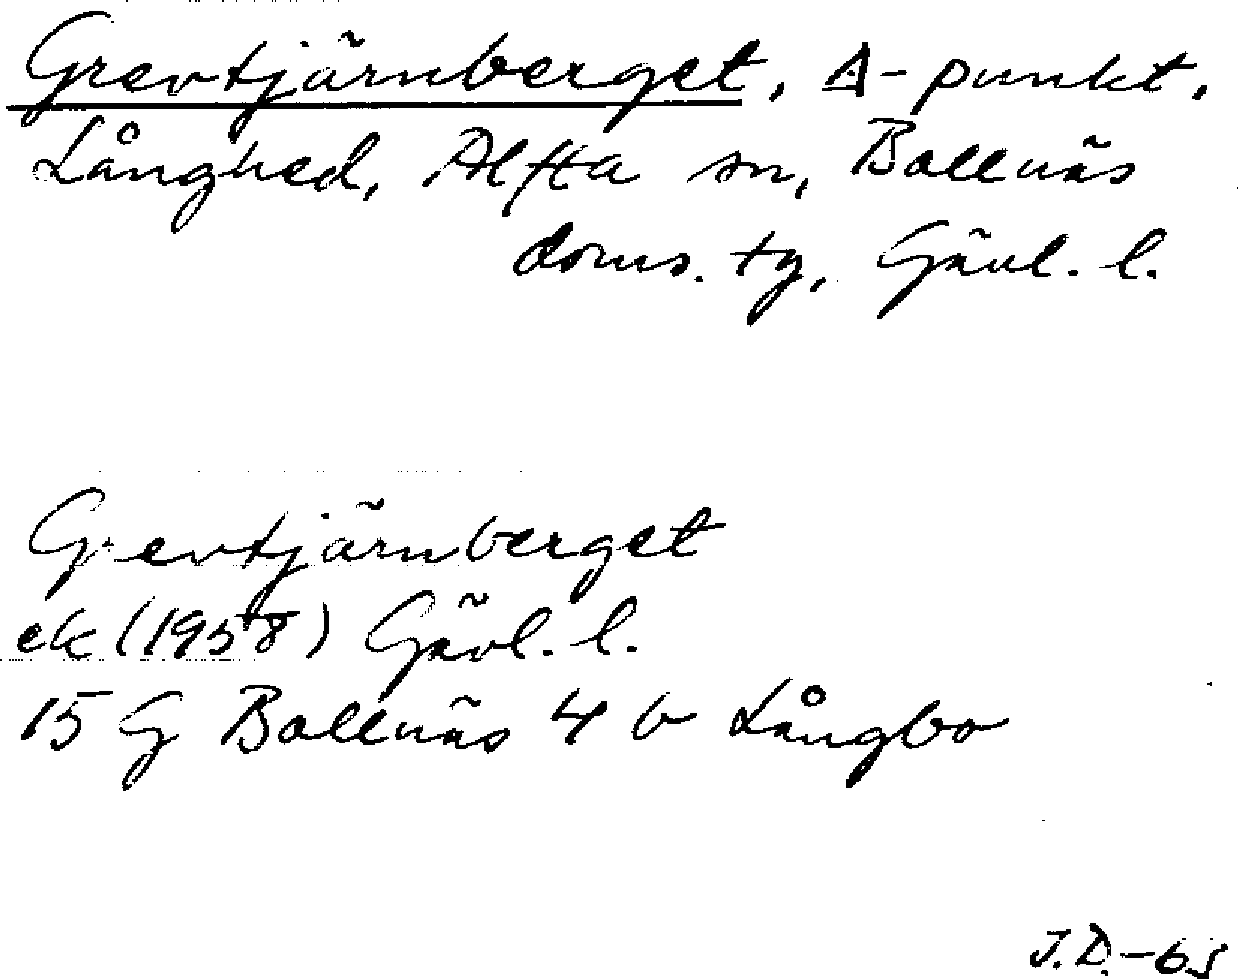 Grevtjärnberget, Δ-punkt,
Långhed, Alfta sn, Bollnäs
doms. tg, Gävl. l.
Grevtjärnberget
ek (1958) Gävl. l.
15 G Bollnäs 4 b Långbo
J.D.-65